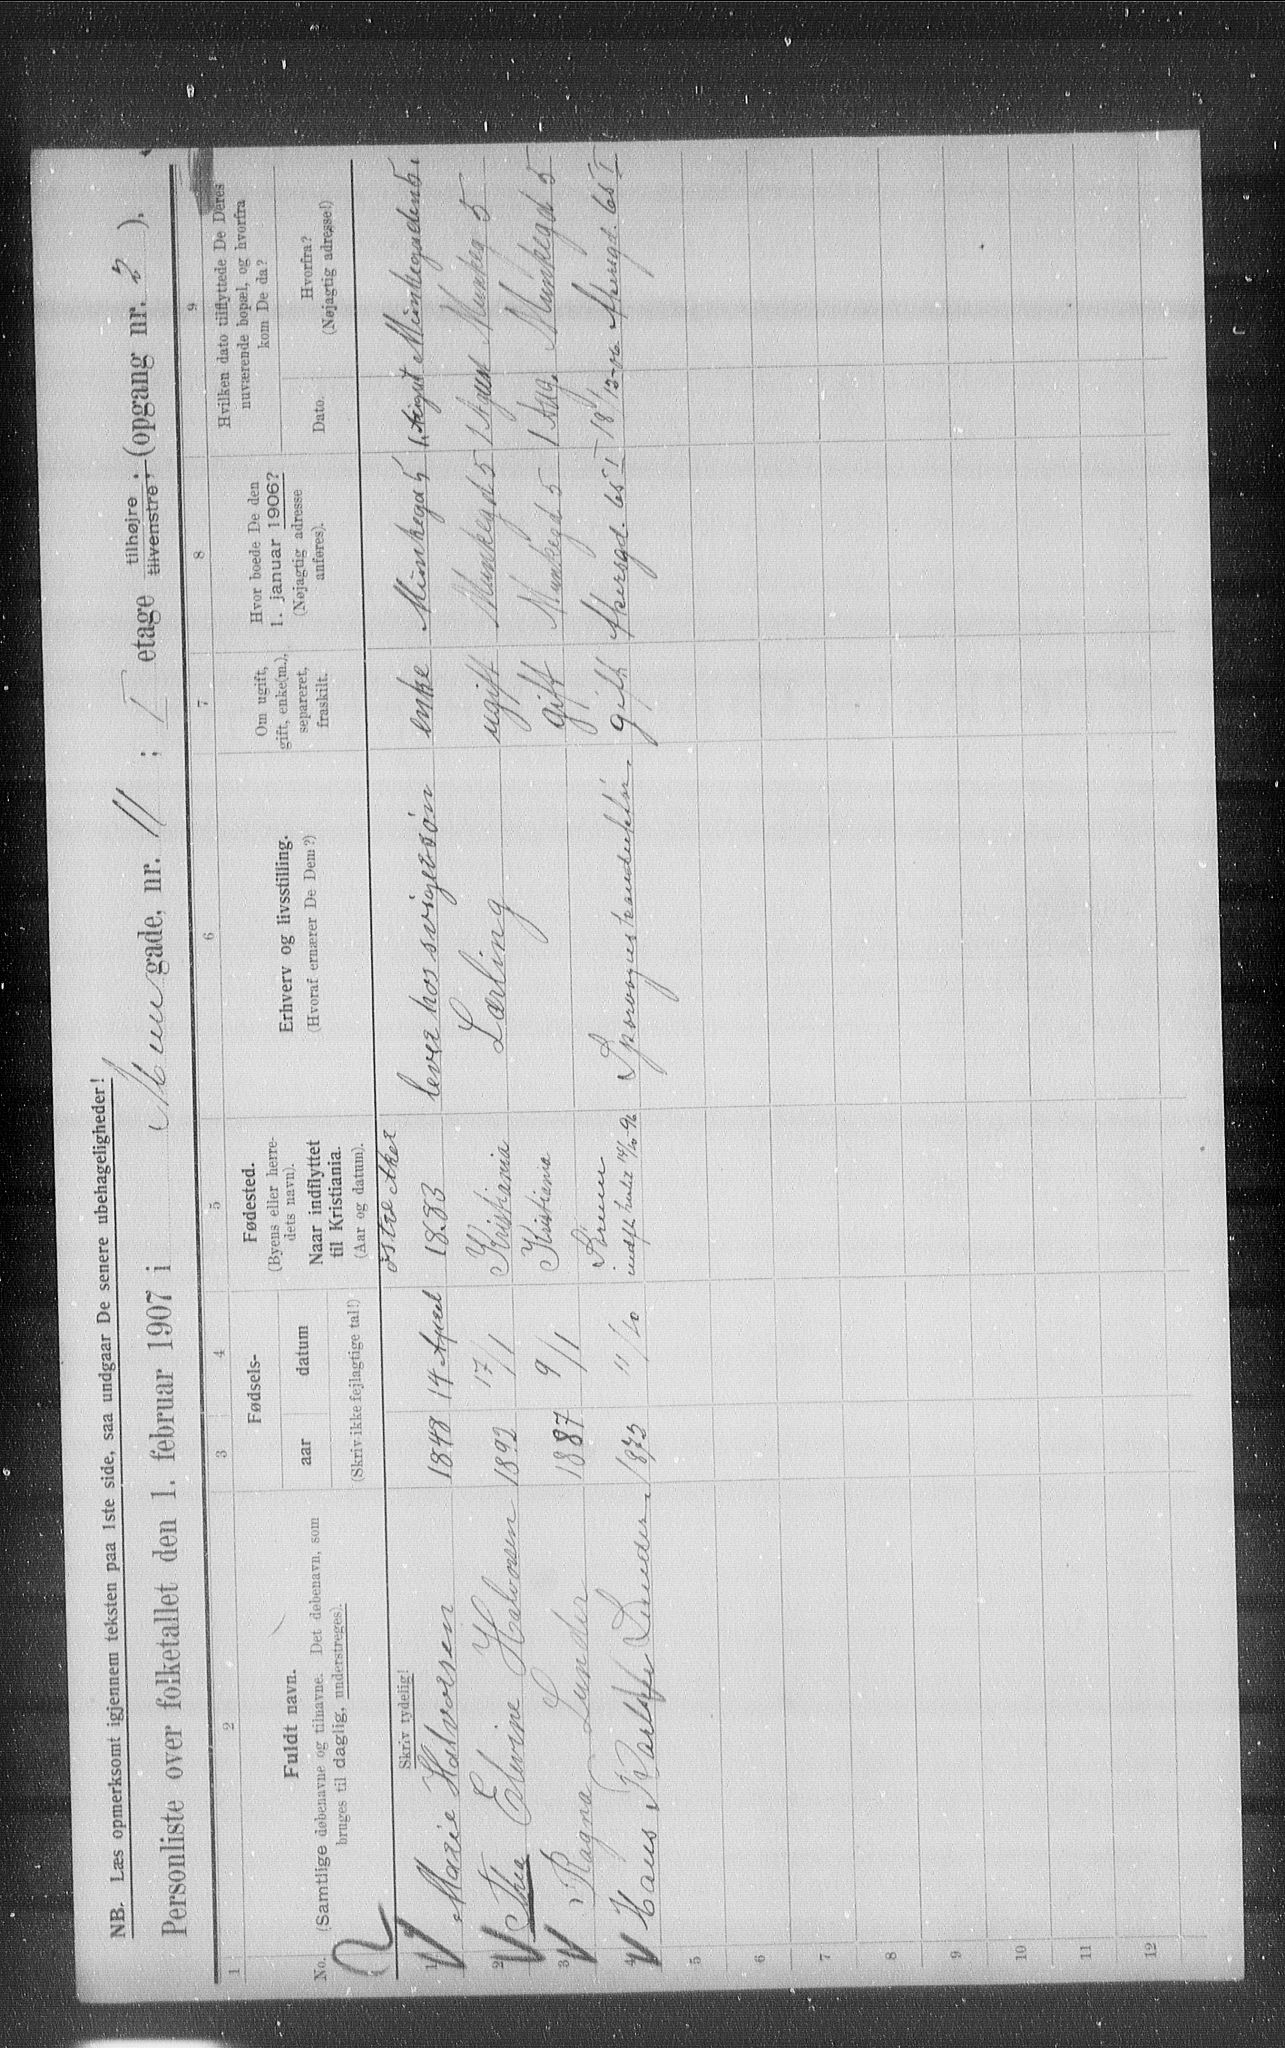 NB. Læs opmerksomt igjennem teksten paa 1ste side, saa undgaar De senere ubehageligheder!
Personliste over folketallet den 1. februar 1907 i gade, nr. 11 ; I etage tilhøjre ; tilvenstre ; (opgang nr. 2 ).
1 2 3 4 5 6 7 8 9
No.
Fuldt navn.
(Samtlige døbenavne og tilnavne. Det døbenavn, som
bruges til daglig, understreges).
Fødsels-
aar datum
(Skriv ikke fejlagtige tal!)
Fødested.
(Byens eller herre-
dets navn).
Naar indflyttet
til Kristiania.
(Aar og datum).
Erhverv og livsstilling.
(Hvoraf ernærer De Dem?)
Om ugift,
gift, enke(m.),
separeret,
fraskilt.
Hvor boede De den
1. januar 1906?
(Nøjagtig adresse
anføres).
Hvilken dato tilflyttede De Deres
nuværende bopæl, og hvorfra
kom De da?
Dato.
Hvorfra?
(Nøjagtig adresse!)
Skriv tydelig!
østre Aker
1 Marie Halvorsen 1848 14 April 1883 lever hos svigersøn enke Munkegd 5 1 August Munkegaden 5
2 Thea Elvine Halvorsen 1892 17/1 Kristiania Lærling ugift Munkegd 5 1 Munkeg 5
3 Ragna Lunder 1887 9/1 Kristiania gift Munkegd 5 1 Aug. Munkegd 5
4 Hans Lunder 1873 11/10 Sporvognskonduktør gift Akersgd. 65 I 18/12-06 Akersgd. 65 I
5
6
7
8
9
10
11
12